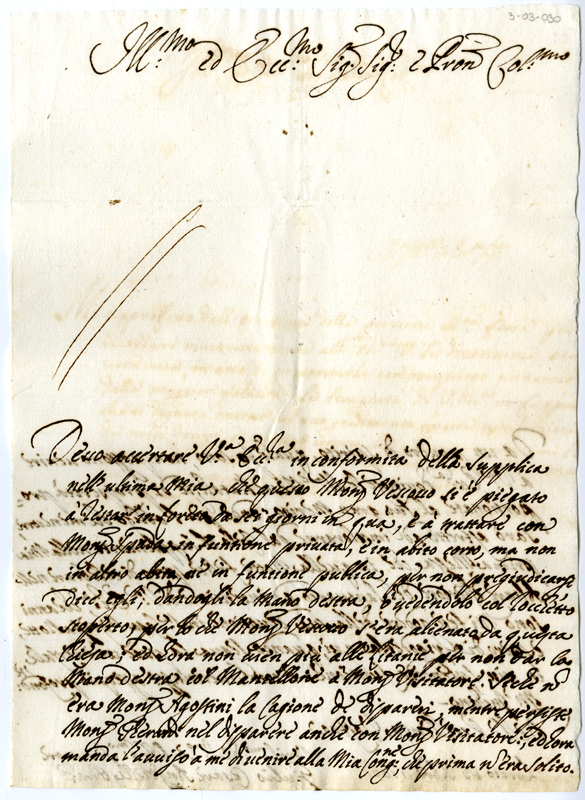 3-03-030
Ill.mo ed Ecc.mo Sig.r Sig.r e Pron Col.mo
Devo accertare V.a Ecc.a in conformità della supplica
nell'ultima mia, che questo Mons.r Vescovo si è piegato
à restar in forcada sei giorni in quà, e à trattare con
Mons.r Spada in funtione privata, e in abito corto, ma non
in altro abito, nè in funtione publica, per non pregiudicarsi
dice egli, dandogli la mano destra, ò vedendolo col Rocchetto
scoperto, per lo che Mons.r Vescovo s'era alienato da questa
Chiesa, ed hora non vien più alle Litanie per non dar la
Mano destra col Mantellone à Mons.r Visitatore. Si che n
era Mons.r Agostini la cagione de dispareri, mentre persiste
Mons.r nel disparere anche con Mons.r Visitatore, ed hora
manda l'avviso à me di venire alla Mia Cong.ne, che prima n era solito.